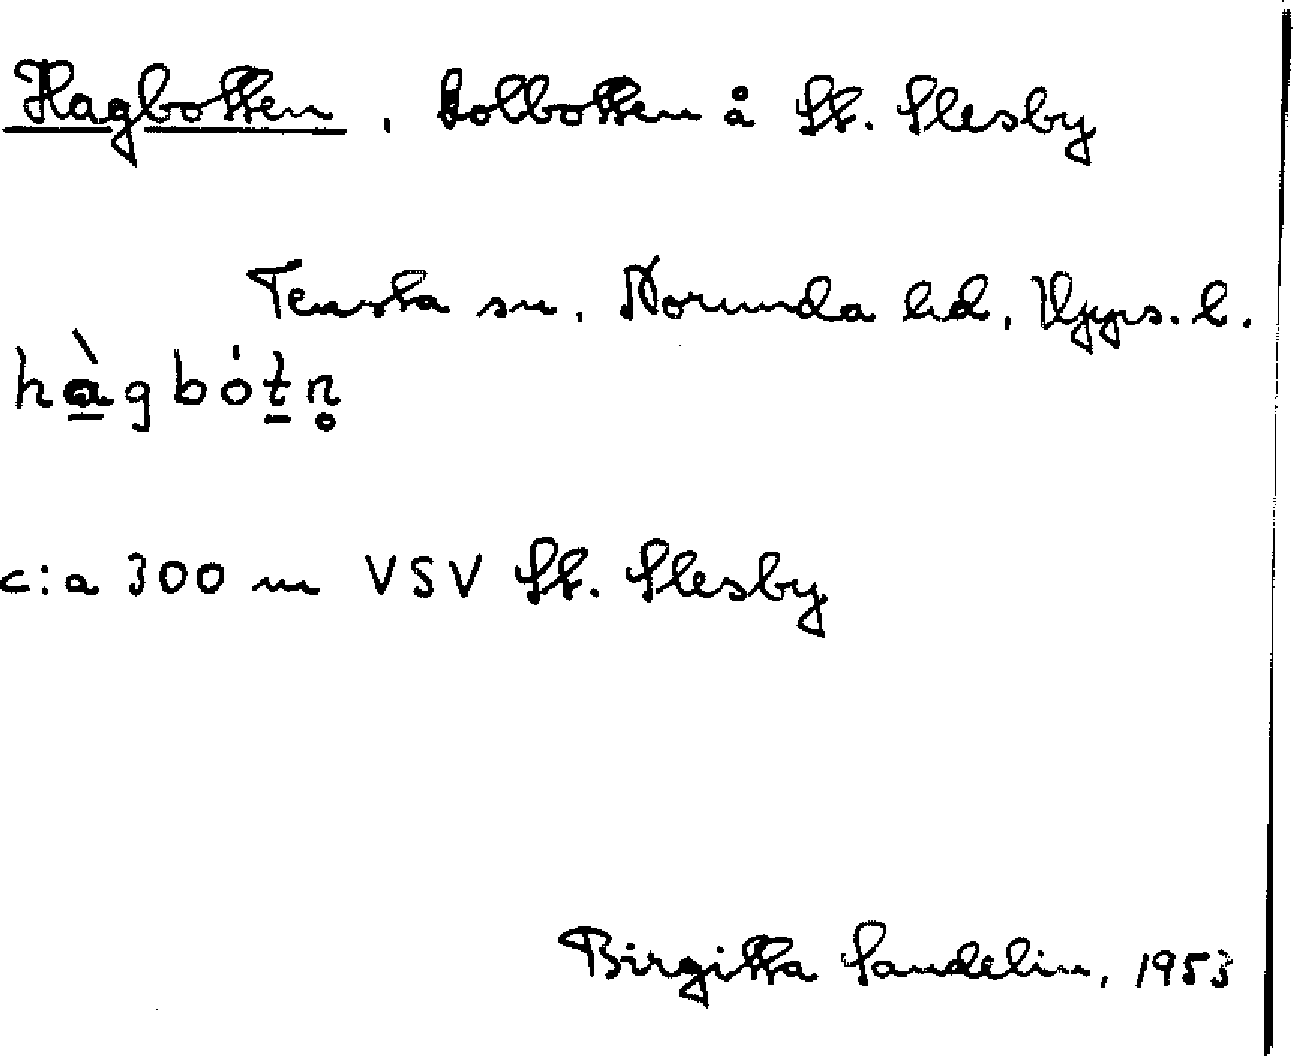 Hagbotten, kolbotten å St. Slesby
Tensta sn, Norunda hd, Upps. l.
hàgbótn̥
c:a 300 m VSV St. Slesby
Birgitta Sandelin, 1953